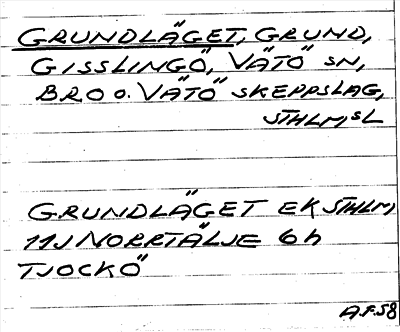 GRUNDLÄGET, GRUND,
GISSLINGÖ, VÄTÖ SN,
BRO O. VÄTÖ SKEPPSLAG,
STHLM,SL
GRUNDLÄGET EK STHLM,
11J NORRTÄLJE 6h
TJOCKÖ
A.F.58